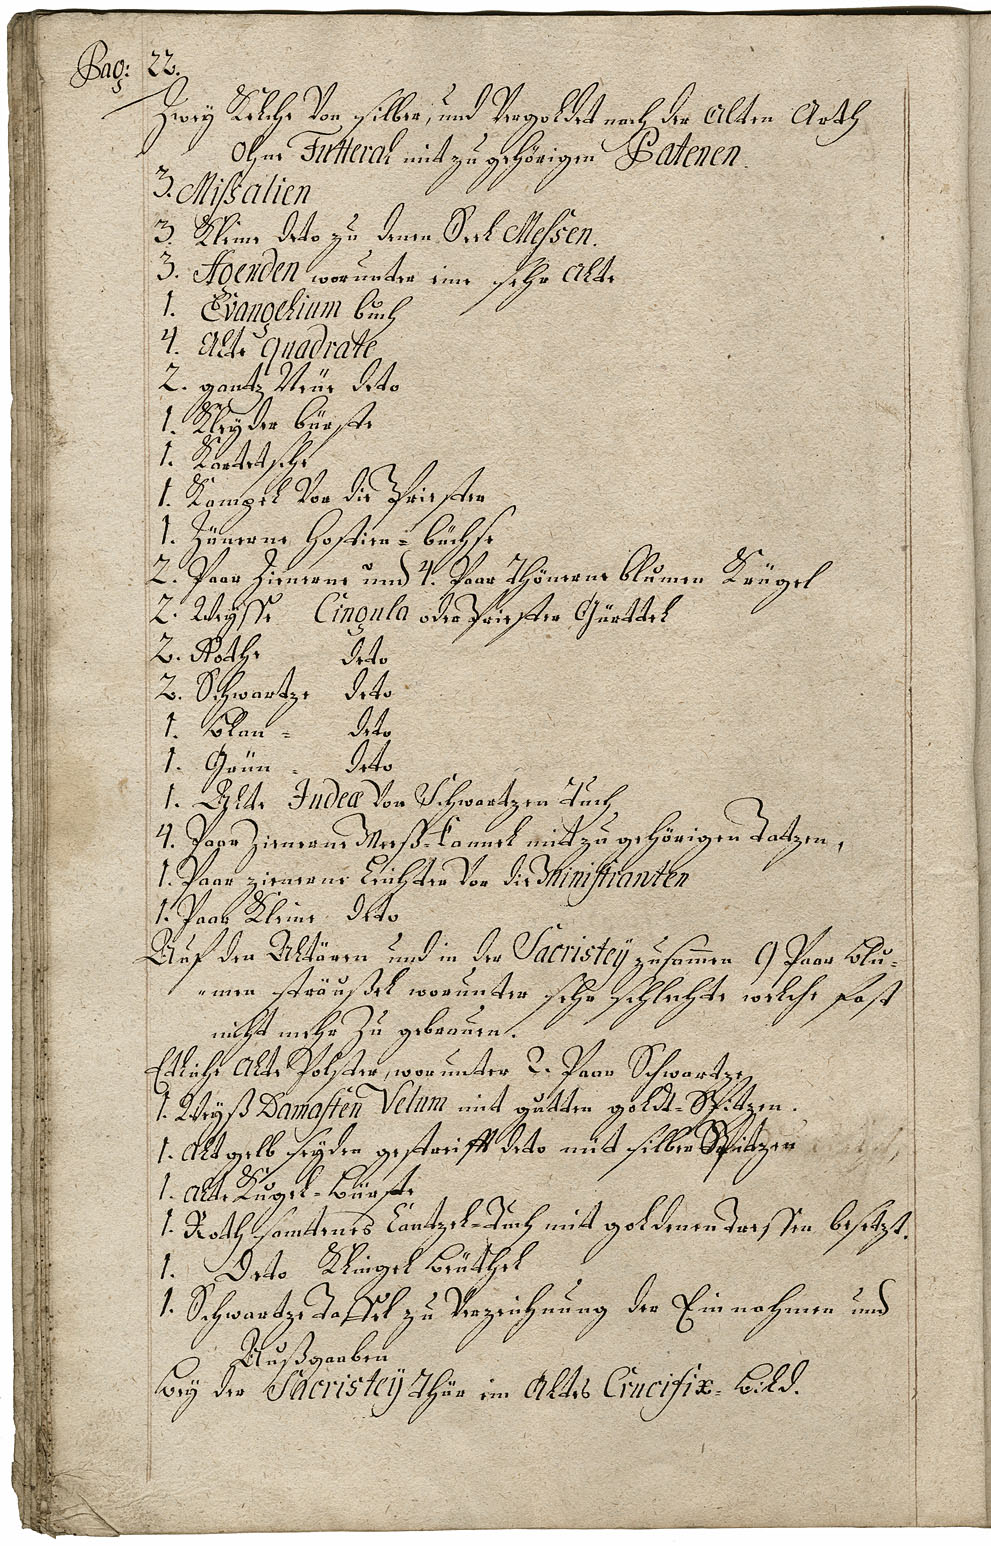 Pag: 22.
Zweÿ Kelche Von silber, und Vergoldet nach der Alten Arth
Ohne Futteral mit zu gehörigen Patenen.
3. Missalien
3. Kleine deto zu denen Seel Messen.
3. Agenden worunter eine sehr Alte
1. Evangelium buch
4. Alte Quadrate
2. gantz Neüe deto
1. Kleÿder bürste
1. Kartetsche
1. Kampel Vor die Priester
1. Zünerne Hostien=büchse
2. Paar Zienerne und 4. Paar Thönerne blumen Krügel
2. Weÿsse Cingula oder Priester Gürttel
2. Rothe deto
2. Schwartze deto
1. Blau = deto
1. Grün - deto
1. Alte Judea Von Schwartzen Tuch
4. Paar Zienerne Mess-Kannel mit zu gehörigen Tatzen,
1. Paar zienerne Leüchter Vor die Ministranten
1. Paar Kleine deto
Auf den Altären und in der Sacristeÿ zusamen 9 Paar Blu=
=men sträußel worunter sehr schlechte welche fast
nicht mehr Zu gebrauen.
Etliche Alte Polster, worunter 2. Paar Schwartze
1. Weÿß Damasten Velum mit gutten goldt=Spitzen.
1. Alt gelb seÿden gestreifft deto mit silber Spitzen
1. Alte Kugel-Bürste
1. Roth samtenes Cantzel=Tuch mit goldenen Tressen besetzt.
1. Deto Klingel Beütthel
1. Schwartze Taffel zu Verzeichnung der Einnahmen und
Außgaaben
Beÿ der Sacristeÿ Thür ein Altes Crucifix=Bild.